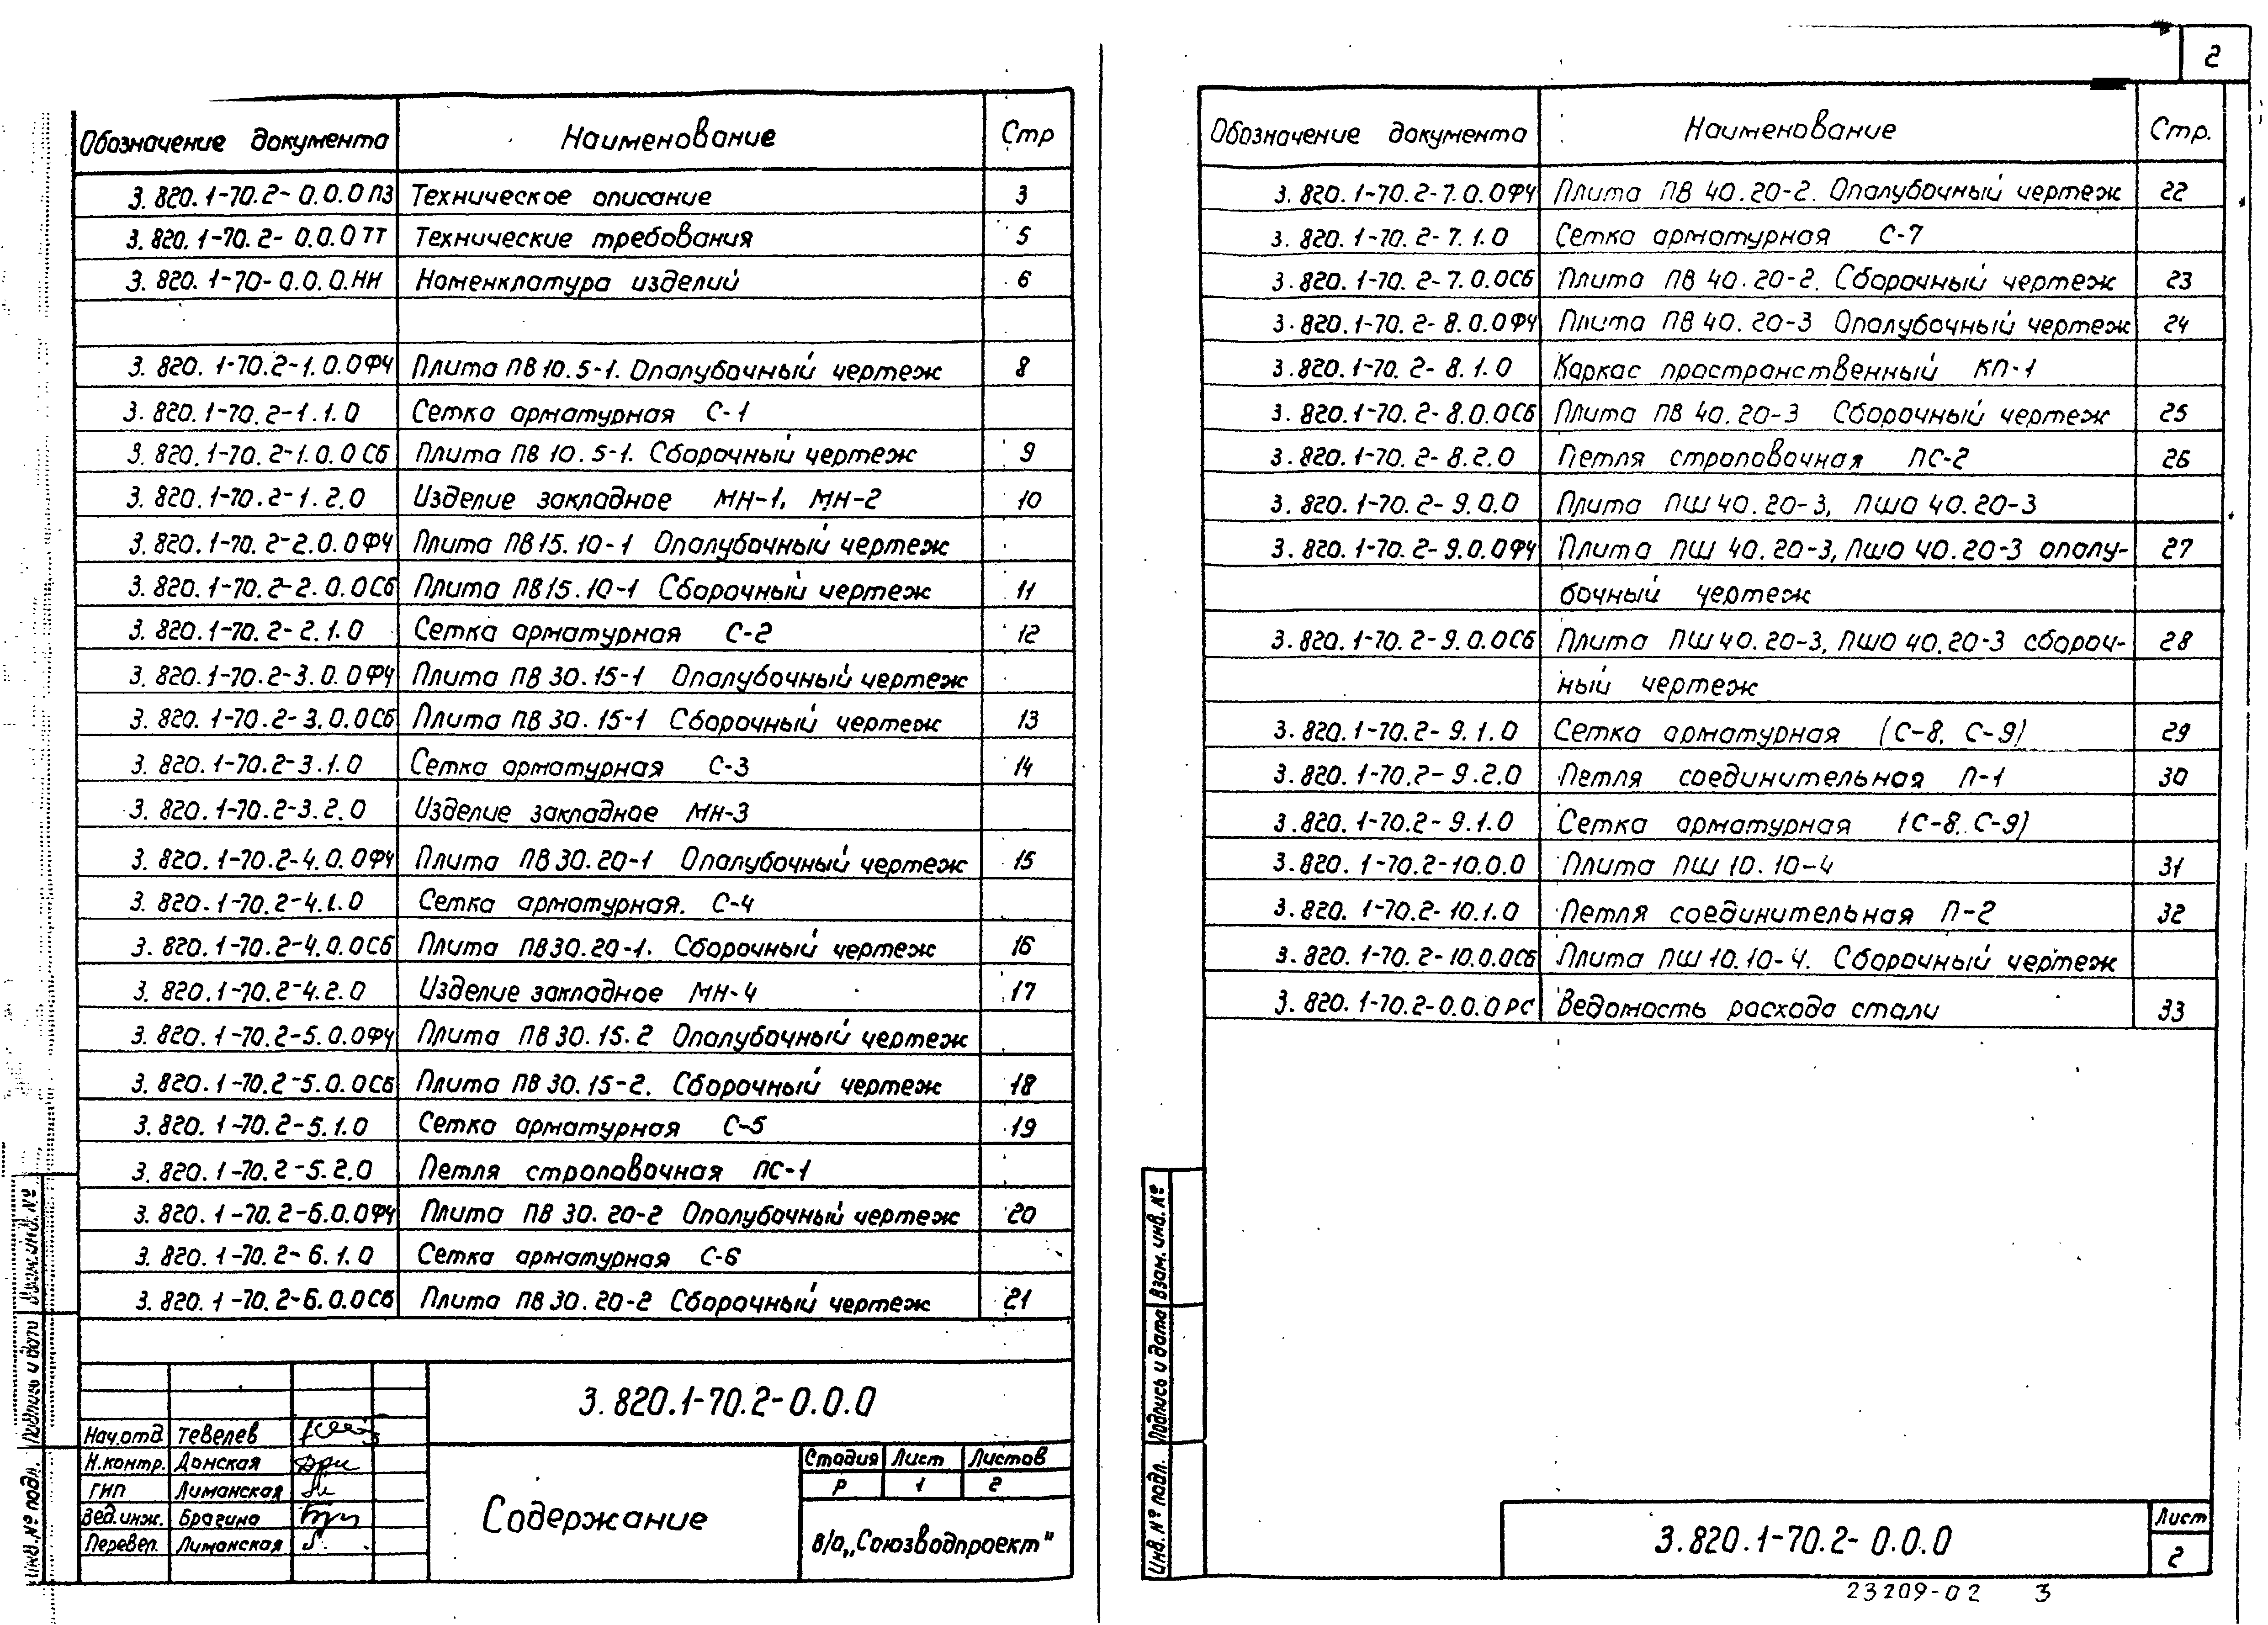 2
Обозначение документа Наименование Стр
3.820.1-70.2-0.0.0ПЗ Техническое описание 3
3.820.1-70.2-0.0.0ТТ Технические требования 5
3.820.1-70-0.0.0.НИ Номенклатура изделий 6
3.820.1-70.2-1.0.0ФЧ Плита ПВ10.5-1. Опалубочный чертеж 8
3.820.1-70.2-1.1.0 Сетка арматурная С-1
3.820.1-70.2-1.0.0СБ Плита ПВ 10.5-1. Сборочный чертеж 9
3.820.1-70.2-1.2.0 Изделие закладное МН-1, МН-2 10
3.820.1-70.2-2.0.0ФЧ Плита ПВ15.10-1 Опалубочный чертеж
3.820.1-70.2-2.0.0СБ Плита ПВ15.10-1 Сборочный чертеж 11
3.820.1-70.2-2.1.0 Сетка арматурная С-2 12
3.820.1-70.2-3.0.0ФЧ Плита ПВ 30.15-1 Опалубочный чертеж
3.820.1-70.2-3.0.0СБ Плита ПВ 30.15-1 Сборочный чертеж 13
3.820.1-70.2-3.1.0 Сетка арматурная С-3 14
3.820.1-70.2-3.2.0 Изделие закладное МН-3
3.820.1-70.2-4.0.0ФЧ Плита ПВ30.20-1 Опалубочный чертеж 15
3.820.1-70.2-4.1.0 Сетка арматурная. С-4
3.820.1-70.2-4.0.0СБ Плита ПВ30.20-1. Сборочный чертеж 16
3.820.1-70.2-4.2.0 Изделие закладное МН-4 17
3.820.1-70.2-5.0.0ФЧ Плита ПВ 30.15.2 Опалубочный чертеж
3.820.1-70.2-5.0.0СБ Плита ПВ 30.15-2. Сборочный чертеж 18
3.820.1-70.2-5.1.0 Сетка арматурная С-5 19
3.820.1-70.2-5.2.0 Петля строповочная ПС-1
3.820.1-70.2-6.0.0ФЧ Плита ПВ 30.20-2 Опалубочный чертеж 20
3.820.1-70.2-6.1.0 Сетка арматурная С-6
3.820.1-70.2-6.0.0СБ Плита ПВ 30.20-2 Сборочный чертеж 21
3.820.1-70.2-0.0.0
Нач.отд Тевелев
Н.контр. Донская
ГИП Лиманская
Вед.инж. Брагина
Перевер. Лиманская
Содержание
Стадия Лист Листов
Р 1 2
В/О„Союзводпроект"
Инв.№ подл. Подпись и дата Взам.инв.№
Обозначение документа Наименование Стр.
3.820.1-70.2-7.0.0ФЧ Плита ПВ 40.20-2. Опалубочный чертеж 22
3.820.1-70.2-7.1.0 Сетка арматурная С-7
3.820.1-70.2-7.0.0СБ Плита ПВ 40.20-2. Сборочный чертеж 23
3.820.1-70.2-8.0.0ФЧ Плита ПВ 40.20-3 Опалубочный чертеж 24
3.820.1-70.2-8.1.0 Каркас пространственный КП-1
3.820.1-70.2-8.0.0СБ Плита ПВ 40.20-3 Сборочный чертеж 25
3.820.1-70.2-8.2.0 Петля строповочная ПС-2 26
3.820.1-70.2-9.0.0 Плита ПШ 40.20-3, ПШО 40.20-3
3.820.1-70.2-9.0.0ФЧ Плита ПШ 40.20-3, ПШО 40.20-3 опалу- 27
бочный чертеж
3.820.1-70.2-9.0.0СБ Плита ПШ 40.20-3, ПШО 40.20-3 сбороч- 28
ный чертеж
3.820.1-70.2-9.1.0 Сетка арматурная (С-8. С-9) 29
3.820.1-70.2-9.2.0 Петля соединительная П-1 30
3.820.1-70.2-9.1.0 Сетка арматурная (С-8. С-9)
3.820.1-70.2-10.0.0 Плита ПШ 10.10-4 31
3.820.1-70.2-10.1.0 Петля соединительная П-2 32
3.820.1-70.2-10.0.0СБ Плита ПШ 10.10-4. Сборочный чертеж
3.820.1-70.2-0.0.0РС Ведомость расхода стали 33
Инв.№ подл. Подпись и дата Взам.инв.№
3.820.1-70.2-0.0.0
Лист
2
23209-02 3